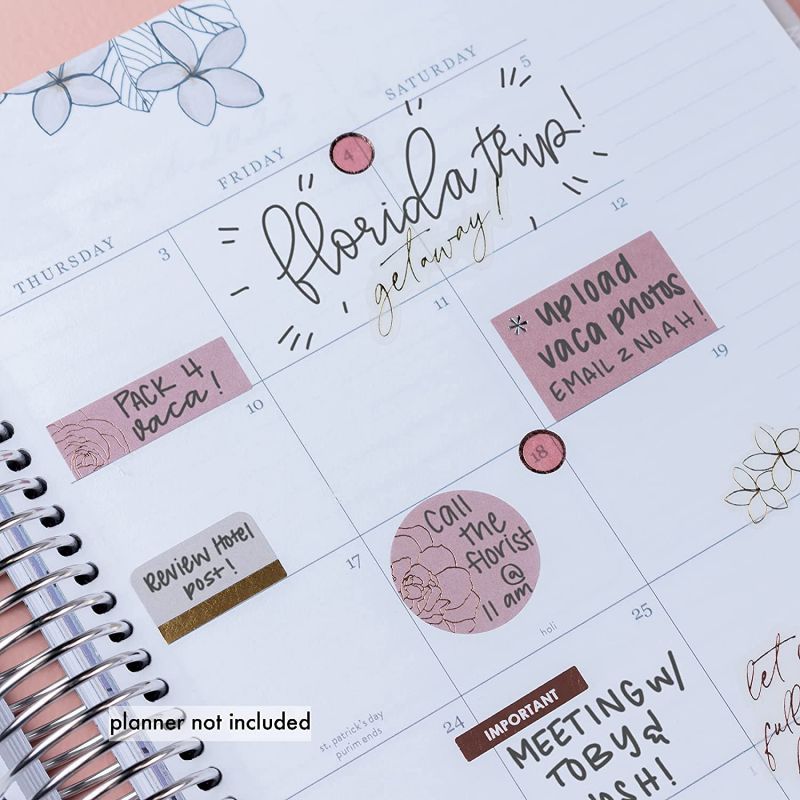 SATURDAY
5
FRIDAY
4
THURSDAY
3
florida trip!
getaway!
12
11
* upload
vaca photos
EMAIL 2 NOAH!
10
PACK 4
vaca!
19
18
Call
the
florist
@
11 am
holi
17
Review Hotel
post!
st. patrick's day
purim ends
25
24
IMPORTANT
MEETING W/
TOBY &
let
planner not included